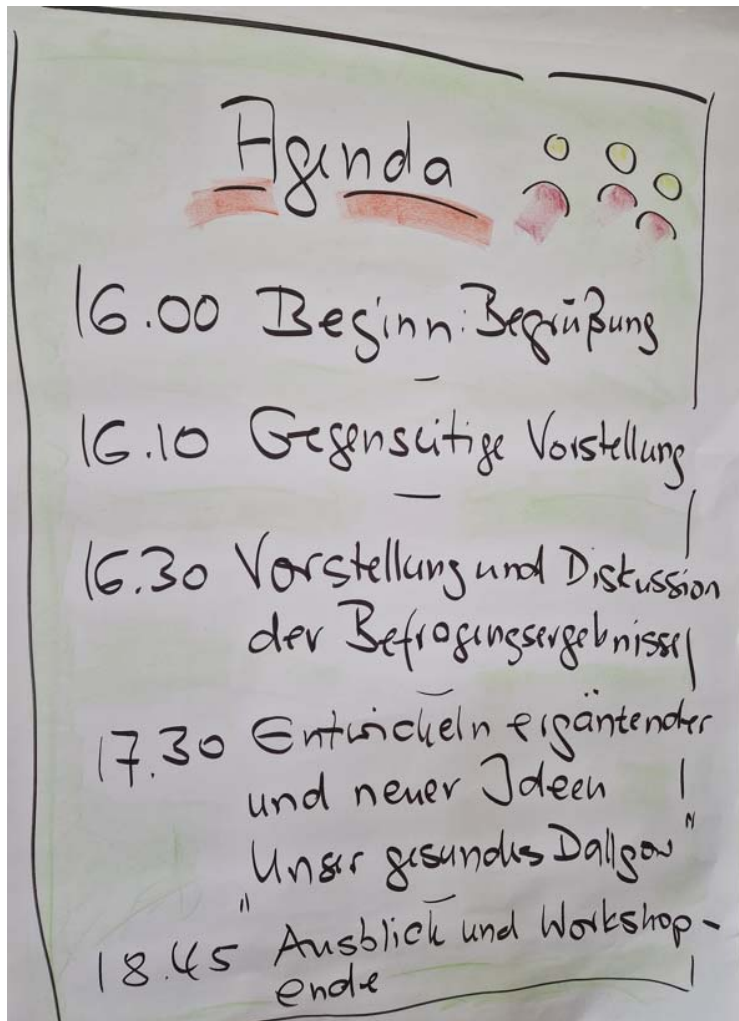 Agenda
16.00 Beginn: Begrüßung
16.10 Gegenseitige Vorstellung
16.30 Vorstellung und Diskussion
der Befragungsergebnisse
17.30 Entwickeln ergänzender
und neuer Ideen
"Unser gesundes Dallgow"
18.45 Ausblick und Workshop-
ende